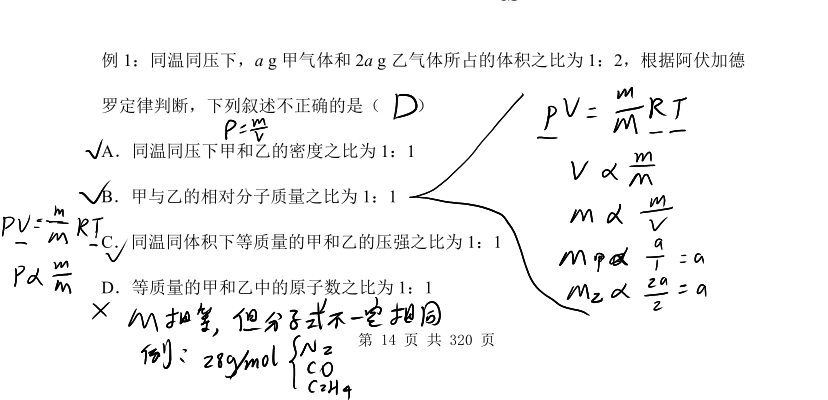 例 1：同温同压下，a g 甲气体和 2a g 乙气体所占的体积之比为 1：2，根据阿伏加德
罗定律判断，下列叙述不正确的是（ D ）
ρ=m/V
√A．同温同压下甲和乙的密度之比为 1：1
√B．甲与乙的相对分子质量之比为 1：1
√C．同温同体积下等质量的甲和乙的压强之比为 1：1
D．等质量的甲和乙中的原子数之比为 1：1
× M相等，但分子式不一定相同
例：28g/mol { N2
CO
C2H4
PV=m/M RT
P∝m/M
PV=m/M RT
V∝m/M
M∝m/V
M甲∝a/1=a
M乙∝2a/2=a
第 14 页 共 320 页